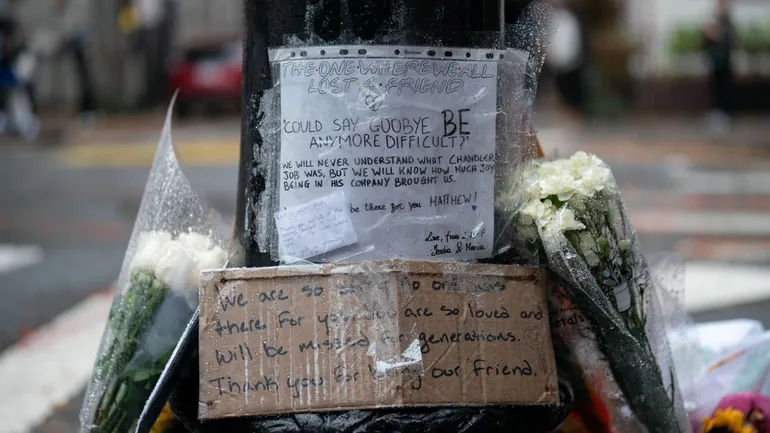 THE·ONE·WHERE·WE·ALL
LOST A FRIEND
"COULD SAY GOOBYE BE
ANYMORE DIFFICULT?"
WE WILL NEVER UNDERSTAND WHAT CHANDLER
JOB WAS, BUT WE WILL KNOW HOW MUCH JOY
BEING IN HIS COMPANY BROUGHT US.
be there for you MATTHEW!
Love, from
&
We are so no one was
there for you. You are so loved and
will be missed for generations.
Thank you for our friend.